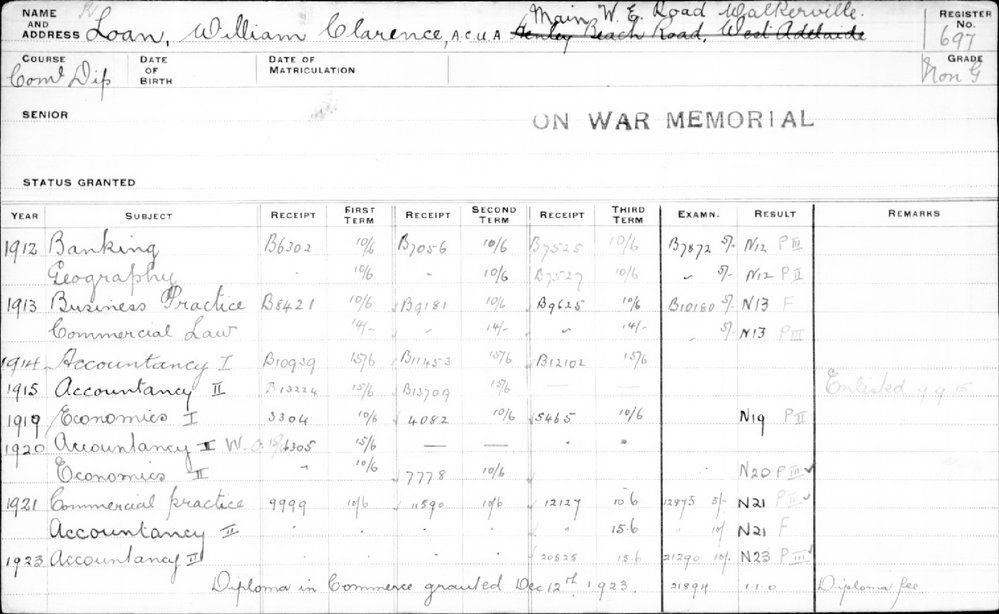 Main W. E. Road Walkerville.
NAME AND ADDRESS Loan, William Clarence, A.C.U.A Henley Beach Road, West Adelaide REGISTER No. 697
COURSE Coml Dip DATE OF BIRTH DATE OF MATRICULATION GRADE Non G
SENIOR ON WAR MEMORIAL
STATUS GRANTED
YEAR SUBJECT RECEIPT FIRST TERM RECEIPT SECOND TERM RECEIPT THIRD TERM EXAMN. RESULT REMARKS
1912 Banking B6302 10/6 B7056 10/6 B7525 10/6 B7872 5/- N12 P III
Geography " 10/6 " 10/6 B7527 10/6 " 5/- N12 P II
1913 Business Practice B8421 10/6 B9181 10/6 B9625 10/6 B10180 5/- N13 F
Commercial Law 14/- " 14/- " 14/- " 5/- N13 P III
1914 Accountancy I B10939 15/6 B11453 15/6 B12102 15/6
1915 Accountancy II B13224 15/6 B13709 15/6 — — Enlisted 9.9.15
1919 Economics I 3304 10/6 4082 10/6 5465 10/6 N19 P II
1920 Accountancy II W. 6305 15/6 — —
Economics II " 10/6 7778 10/6 N20 P III
1921 Commercial practice 9999 10/6 11590 10/6 12127 10 6 12875 5/- N21 P III
Accountancy II " 15.6 " 10/- N21 F
1923 Accountancy II 20525 15.6 21290 10/- N23 P III
Diploma in Commerce granted Dec 12th 1923. 21894 1.1.0 Diploma fee